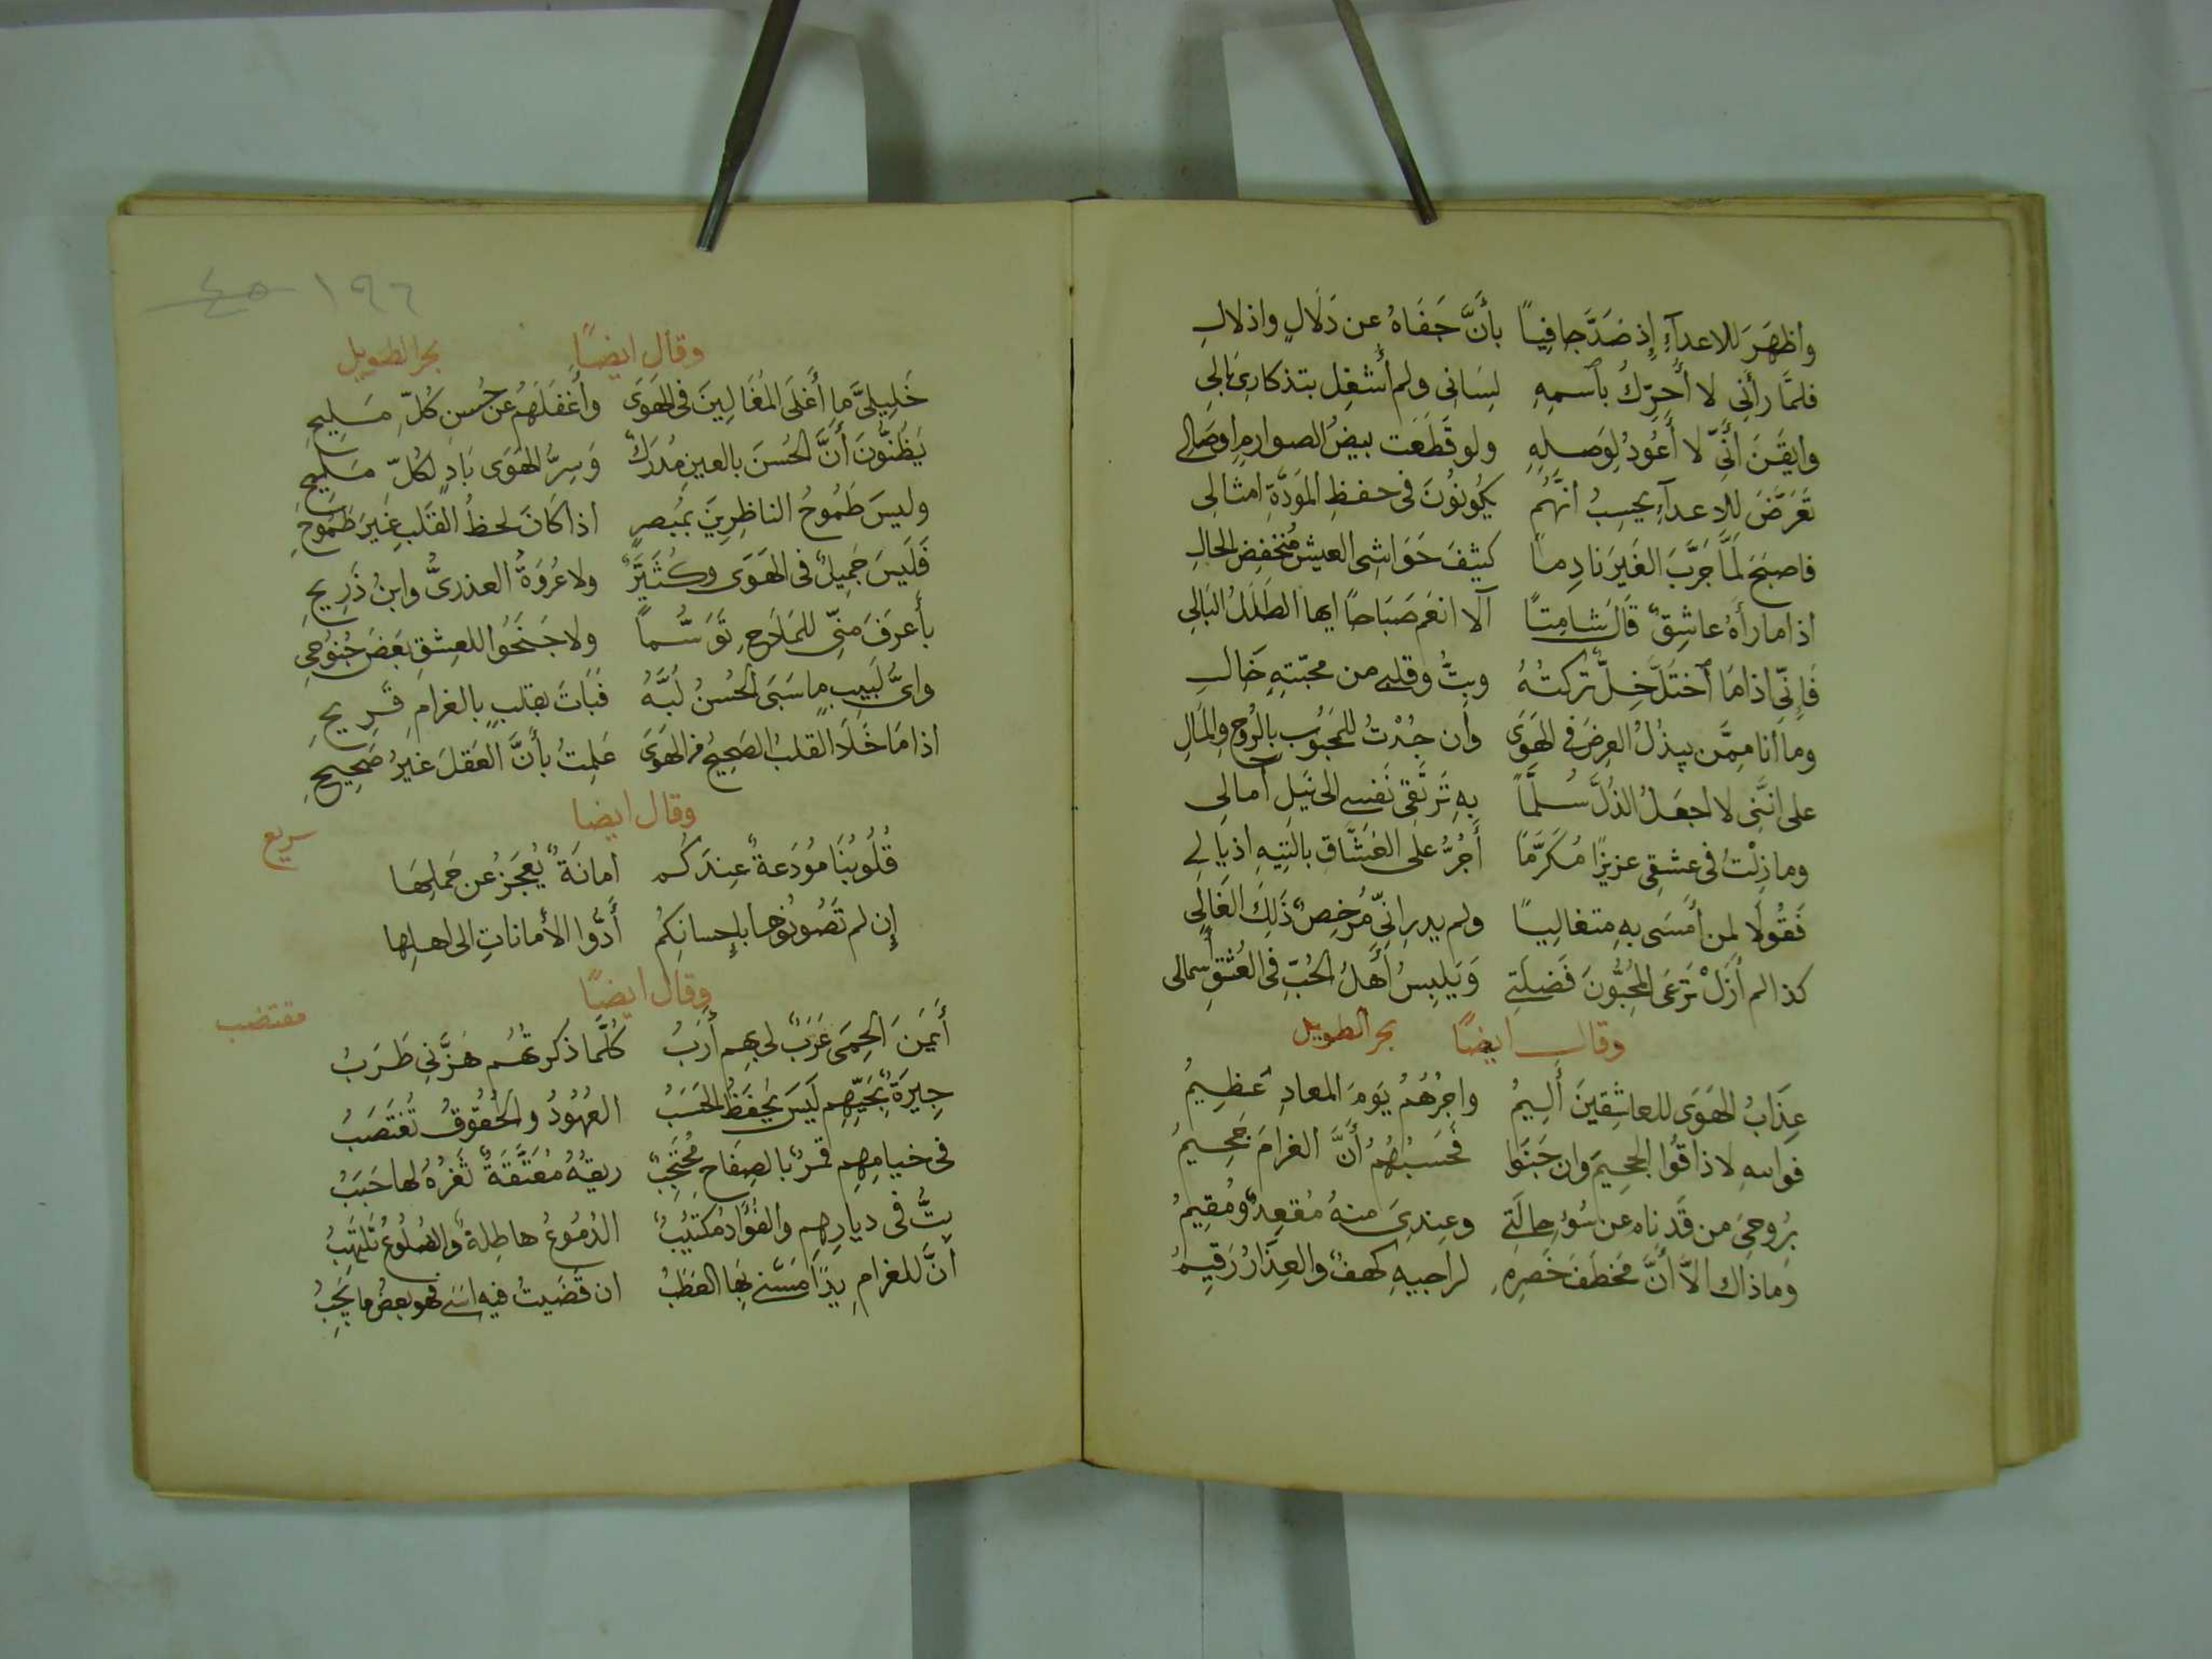 وَاظهَرَ للاعدآءِ إِذ صَدَّ جافِياً بأَنَّ جَفَاهُ عن دَلَالٍ واذلالِ
فلمَّا رأَنِي لا أُحَرِّكُ بٱسمِهِ لِسَانى ولم أُشغِل بتذكارِى بالِى
وايقَنَ أَنِّى لا أَعُودُ لِوَصلِهِ ولو قَطَعَت بيضُ الصوارمِ اوصَالِى
تَعَرَّضَ للاعدآءِ يحسِبُ انهَّمُ يكُونُونَ فى حفظِ المَودَّةِ امثالِى
فاصبَحَ لمَّا جَرَّبَ الغَيرَ نادِماً كثيفَ حَوَاشِى العيشِ مُنخفِضَ الحالِ
اذا ما رأَهُ عاشِقٌ قَالَ شامِتاً أَلا انعَم صَبَاحًا ايها الطَلَلُ البَالِى
فَإِنِّى اذا مَا ٱختَلَّ خِلٌّ تركتُهُ وبِتُّ وقلبى من محبّتِهِ خَالِ
وما أنا مِمَّن يبذُلُ العِرضَ فى الهَوَى وأن جُدْتُ للمَحبُوبِ بالرُوحِ والمَالِ
على انَّنِى لا اجعَلُ الذُلَّ سُلَّماً بهِ تَرتَقِى نَفسِى الى نَيلِ أمالِى
وما زِلْتُ فى عشقِى عزيزًا مُكرَّمًا أَجُرُّ على العُشَّاقِ بالتِيهِ اذيالِى
فَقُولَا لمن أَمسَى بهِ متغالِيًا ولم يدرِ انِّى مُرخِصٌ ذَلِكَ الغَالِى
كذا لم أَزَلْ تَرعَى المُحِبُّونَ فَضلَتِى وَيَلبِسُ أَهلُ الحُبِّ فى العُشقِ أَسمالى
وقال ايضًا بحر الطويل
عِذَابُ الهَوَى للعاشِقينَ أَلِيمُ واجرُهُمُ يَومَ المعادِ عَظِيمُ
فواللهِ لا ذاقُوا الجحِيمَ وان جَنَوا فحَسبُهُمُ أَنَّ الغرامَ جَحِيمُ
بِرُوحِىَ من قَد نِاه عن سُوءِ حالَتِى وعِندِىَ منهُ مُقعِدٌ ومُقِيمُ
وما ذاك الاَّ أَنَّ مخطَفَ خَصرِهِ لراجيهِ كهفٌ والعِذَارُ رَقِيمُ
١٩٦ ٤٥
وقال ايضاً بحر الطويل
خَلِيلىَّ ما أَغلَى المُغَالِينَ فى الهَوَى وأَغفَلَهُم عن حُسنِ كُلِّ مَلِيحِ
يَظُنُّونَ أَنَّ الحُسنَ بالعينِ مُدرَكٌ وَسِرُّ الهَوَى بَادٍ لِكُلِّ مَلِيحِ
وليسَ طَمُوحُ الناظِرينَ بمُبصِرٍ اذا كَانَ لحظُ القَلبِ غَيرَ طَمُوحِ
فَلَيسَ جَمِيلٌ فى الهَوَى وكُثَيِّرٌ ولا عُروَةُ العذرىُّ وابنُ ذَرِيحِ
بأَعرَفَ مِنِّى للمَلَاحِ تَوَسُّماً ولا جَنَحُوا للعِشقِ بَعضَ جُنُوحِى
واىُّ لَبِيبٍ ما سَبَى الحُسنُ لُبَّهُ فَبَاتَ بقلبٍ بالغرامِ قَرِيحِ
اذا مَا خَلَا القلبُ الصَحِيحُ من الهَوَى عَلِمتُ بأَنَّ العَقلَ غَيرُ صَحِيحِ
وقال ايضا سريع
قُلُوبُنَا مُودَعةٌ عِندَكُم أمانَةٌ يُعجَزُ عن حَملِهَا
إِن لم تَصُونُوها بإِحسانِكُم أَدُّوا الأمَاناتِ الى اهلِها
وقال ايضًا مقتضب
أَيمَنَ الحِمَى عَرَبٌ لى بهِم أَرَبُ كُلَّما ذكرتُهُم هَزَّنِى طَرَبُ
جِيرَةٌ بحَيِّهِم لَيسَ يُحفَظُ الحَسَبُ العُهُودُ والحُقُوقُ تُغتَصَبُ
فى خيامِهِم قمرٌ بالصِفاحِ مُحتجِبُ ريقُهُ مُعَتَّقَةٌ ثَغرُهُ لها حَبَبُ
بِتُّ فى ديارِهِم والفُؤَادُ مُكتَئِبُ الدُمُوعُ هاطِلةٌ والضلُوعُ تَلتَهِبُ
أنَّ للغرامِ يدًا مَسَّنِى بهَا العَطَبُ ان قَضَيتُ فيه اسَى فهو بعضُ ما يَجِبُ